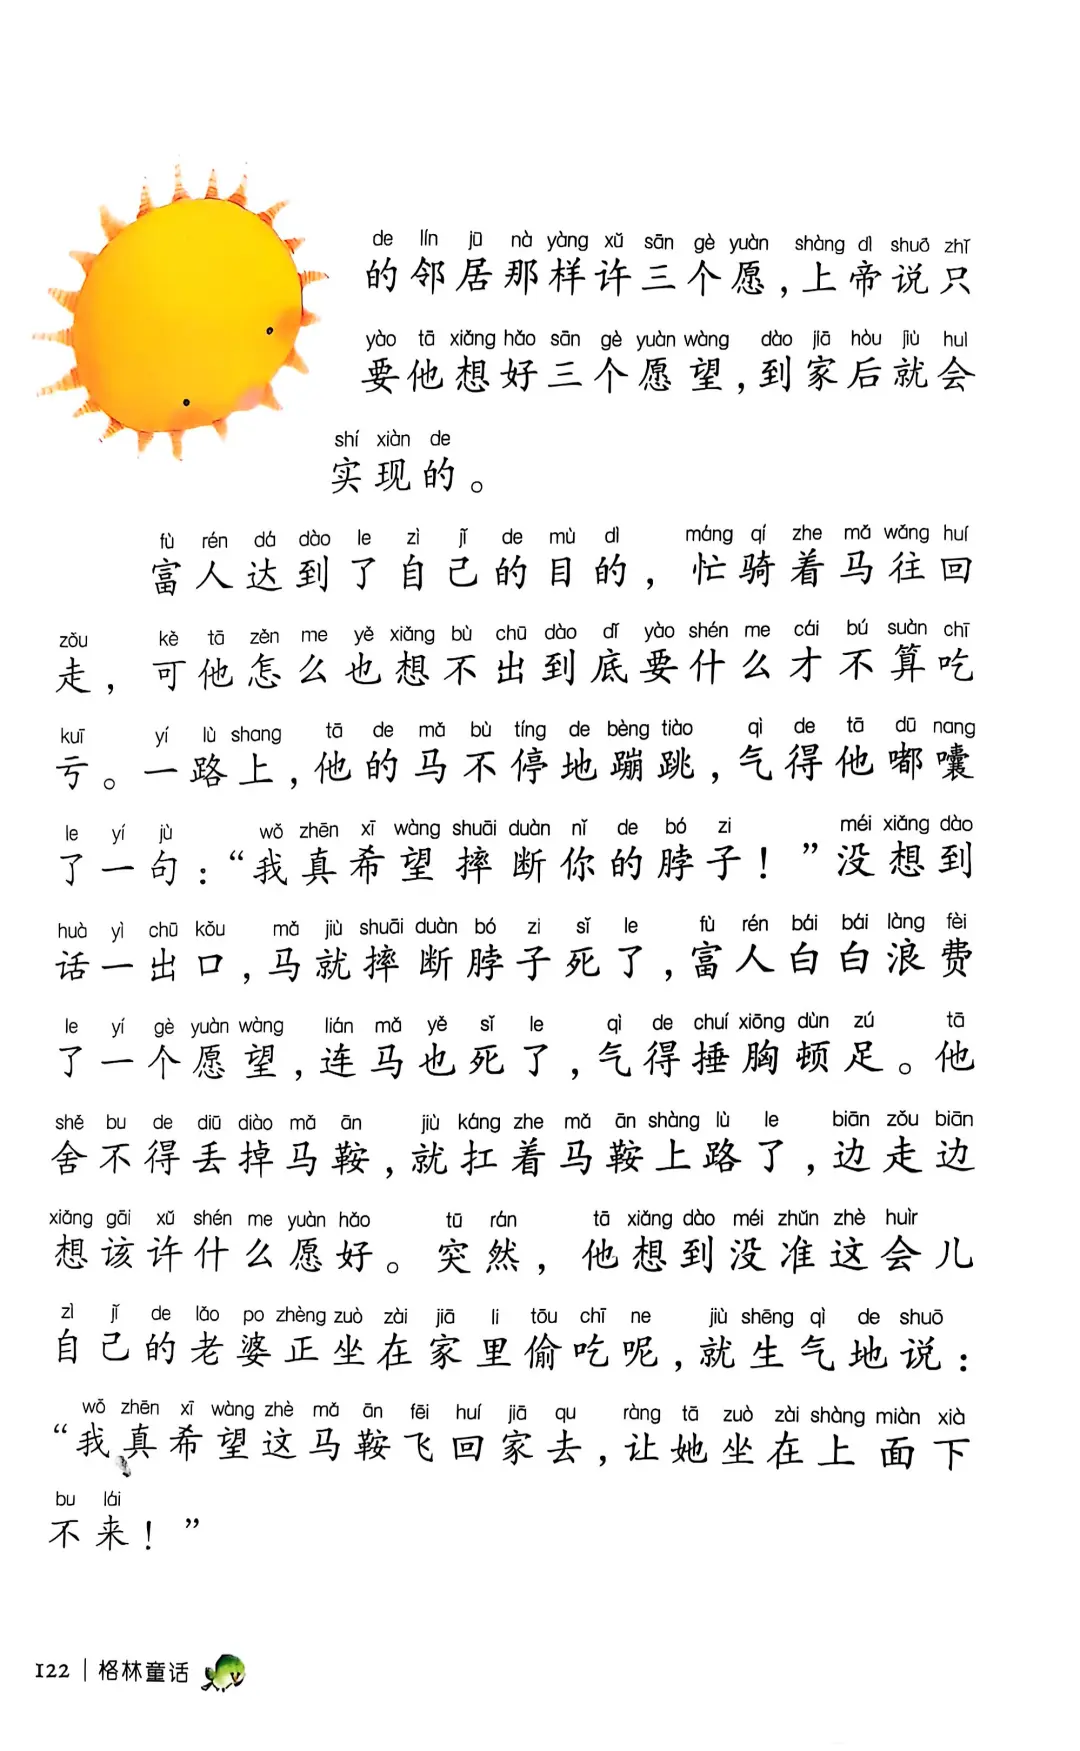 de lín jū nà yàng xǔ sān gè yuàn shàng dì shuō zhǐ
的邻居那样许三个愿，上帝说只
yào tā xiǎng hǎo sān gè yuàn wàng dào jiā hòu jiù huì
要他想好三个愿望，到家后就会
shí xiàn de
实现的。
fù rén dá dào le zì jǐ de mù dì máng qí zhe mǎ wǎng huí
富人达到了自己的目的，忙骑着马往回
zǒu kě tā zěn me yě xiǎng bù chū dào dǐ yào shén me cái bú suàn chī
走，可他怎么也想不出到底要什么才不算吃
kuī yí lù shang tā de mǎ bù tíng de bèng tiào qì de tā dū nang
亏。一路上，他的马不停地蹦跳，气得他嘟囔
le yí jù wǒ zhēn xī wàng shuāi duàn nǐ de bó zi méi xiǎng dào
了一句：“我真希望摔断你的脖子！”没想到
huà yì chū kǒu mǎ jiù shuāi duàn bó zi sǐ le fù rén bái bái làng fèi
话一出口，马就摔断脖子死了，富人白白浪费
le yí gè yuàn wàng lián mǎ yě sǐ le qì de chuí xiōng dùn zú tā
了一个愿望，连马也死了，气得捶胸顿足。他
shě bu de diū diào mǎ ān jiù káng zhe mǎ ān shàng lù le biān zǒu biān
舍不得丢掉马鞍，就扛着马鞍上路了，边走边
xiǎng gāi xǔ shén me yuàn hǎo tū rán tā xiǎng dào méi zhǔn zhè huìr
想该许什么愿好。突然，他想到没准这会儿
zì jǐ de lǎo po zhèng zuò zài jiā li tōu chī ne jiù shēng qì de shuō
自己的老婆正坐在家里偷吃呢，就生气地说：
wǒ zhēn xī wàng zhè mǎ ān fēi huí jiā qu ràng tā zuò zài shàng miàn xià
“我真希望这马鞍飞回家去，让她坐在上面下
bu lái
不来！”
122 | 格林童话